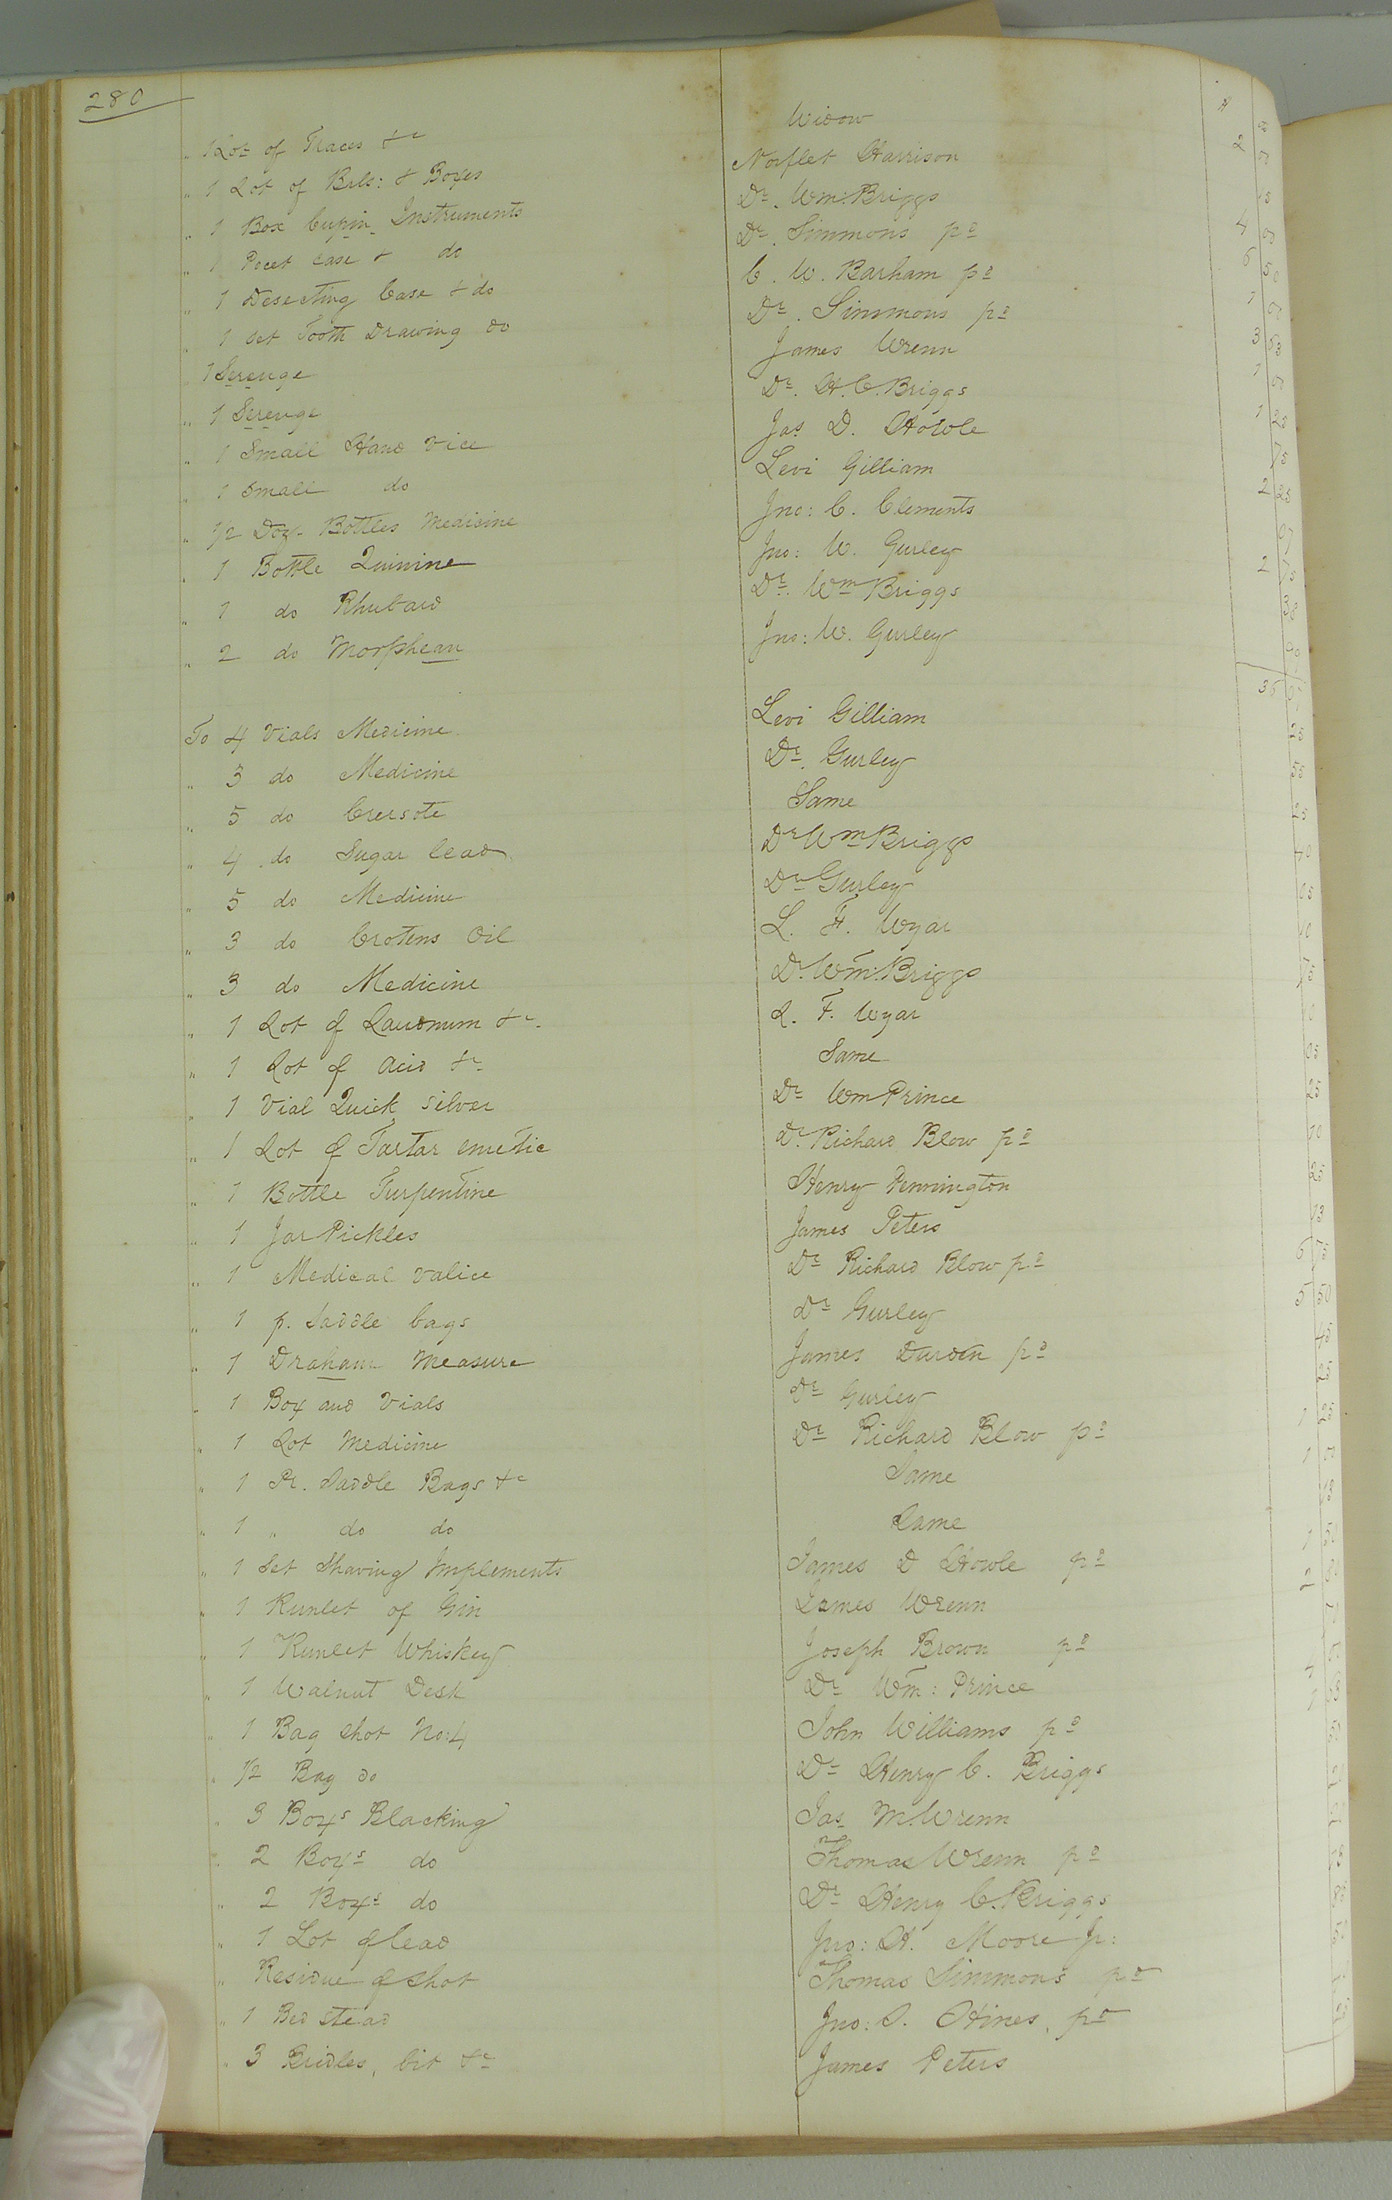 280
" 1 Lot of Traces &c Widow
" 1 Lot of Brls: & Boxes Norflet Harrison 2
" 1 Box Cupin Instruments Dr. Wm: Briggs
" 1 Pocet Case & do Dr. Simmons pd 4
" 1 Desecting Case & do C. W. Barham pd 50
" 1 Set Tooth Drawing do Dr. Simmons pd 1
" 1 Serenge James Wrenn 3
" 1 Serenge Dr. H. C. Briggs 1
" 1 Small Hand Vice Jas D. Howle 1 25
" 1 Small do Levi Gilliam
" 1/2 Doz. Bottles Medicine Jno: C. Clements 2 25
" 1 Bottle Quinine Jno: W. Gurley
" 1 do Rhubard Dr. Wm Briggs 2
" 2 do Morphean Jno: W. Gurley
To 4 Vials Medicine Levi Gilliam
" 3 do Medicine Dr. Gurley
" 5 do Creosote Same 25
" 4 do Sugar lead Dr Wm Briggs
" 5 do Medicine Dr Gurley 05
" 3 do Crotens Oil L. F. Wyar 10
" 3 do Medicine Dr. Wm. Briggs
" 1 Lot of Laudnum &c. L. F. Wyar
" 1 Lot of Acid &c Same 05
" 1 Vial Quick Silver Dr Wm Prince 25
" 1 Lot of Tartar emetic Dr. Richard Blow pd 10
" 1 Bottle Turpentine Henry Pennington 25
" 1 Jar Pickles James Peters
" 1 Medical Valice Dr Richard Blow pd
" 1 p. Saddle bags Dr Gurley 5 50
" 1 Draham Measure James Durden pd
" 1 Box and Vials Dr Gurley
" 1 Lot Medicine Dr Richard Blow pd 1 25
" 1 Pr. Saddle Bags &c Same 1
" 1 " do do Same
" 1 Set Shaving Implements James D Howle pd 1
" 1 Runlet of Gin James Wrenn
" 1 Runlet Whiskey Joseph Brown pd
" 1 Walnut Desk Dr Wm: Prince
" 1 Bag Shot No:4 John Williams pd
" 1/2 Bag do Dr Henry C. Briggs
" 3 Boxs Blacking Jas M. Wrenn
" 2 Boxs do Thomas Wrenn pd
" 2 Boxs do Dr Henry C. Briggs
" 1 Lot of lead Jno: H. Moore Jr:
" Residue of Shot Thomas Simmons pd
" 1 Bed stead Jno: S. Hines, pd
" 3 Bridles, bit &c James Peters